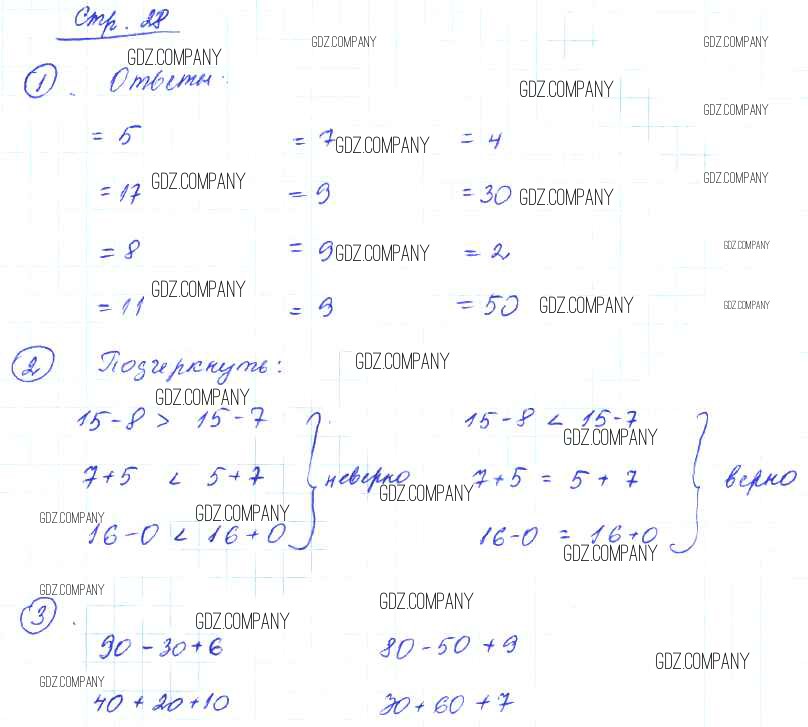 Стр. 28
GDZ.COMPANY GDZ.COMPANY GDZ.COMPANY
1 . Ответы: GDZ.COMPANY
GDZ.COMPANY
= 5 = 7 GDZ.COMPANY = 4
GDZ.COMPANY GDZ.COMPANY
= 17 = 9 = 30 GDZ.COMPANY
= 8 = 9 GDZ.COMPANY = 2 GDZ.COMPANY
GDZ.COMPANY
= 11 = 9 = 50 GDZ.COMPANY GDZ.COMPANY
2 Подчеркнуть: GDZ.COMPANY
GDZ.COMPANY
15-8 > 15-7 15-8 < 15-7
GDZ.COMPANY
7+5 < 5+7 неверно 7+5 = 5+7 верно
GDZ.COMPANY
GDZ.COMPANY GDZ.COMPANY
16-0 < 16+0 16-0 = 16+0
GDZ.COMPANY
GDZ.COMPANY GDZ.COMPANY
3 . GDZ.COMPANY
90-30+6 80-50+9
GDZ.COMPANY
GDZ.COMPANY
40+20+10 30+60+7